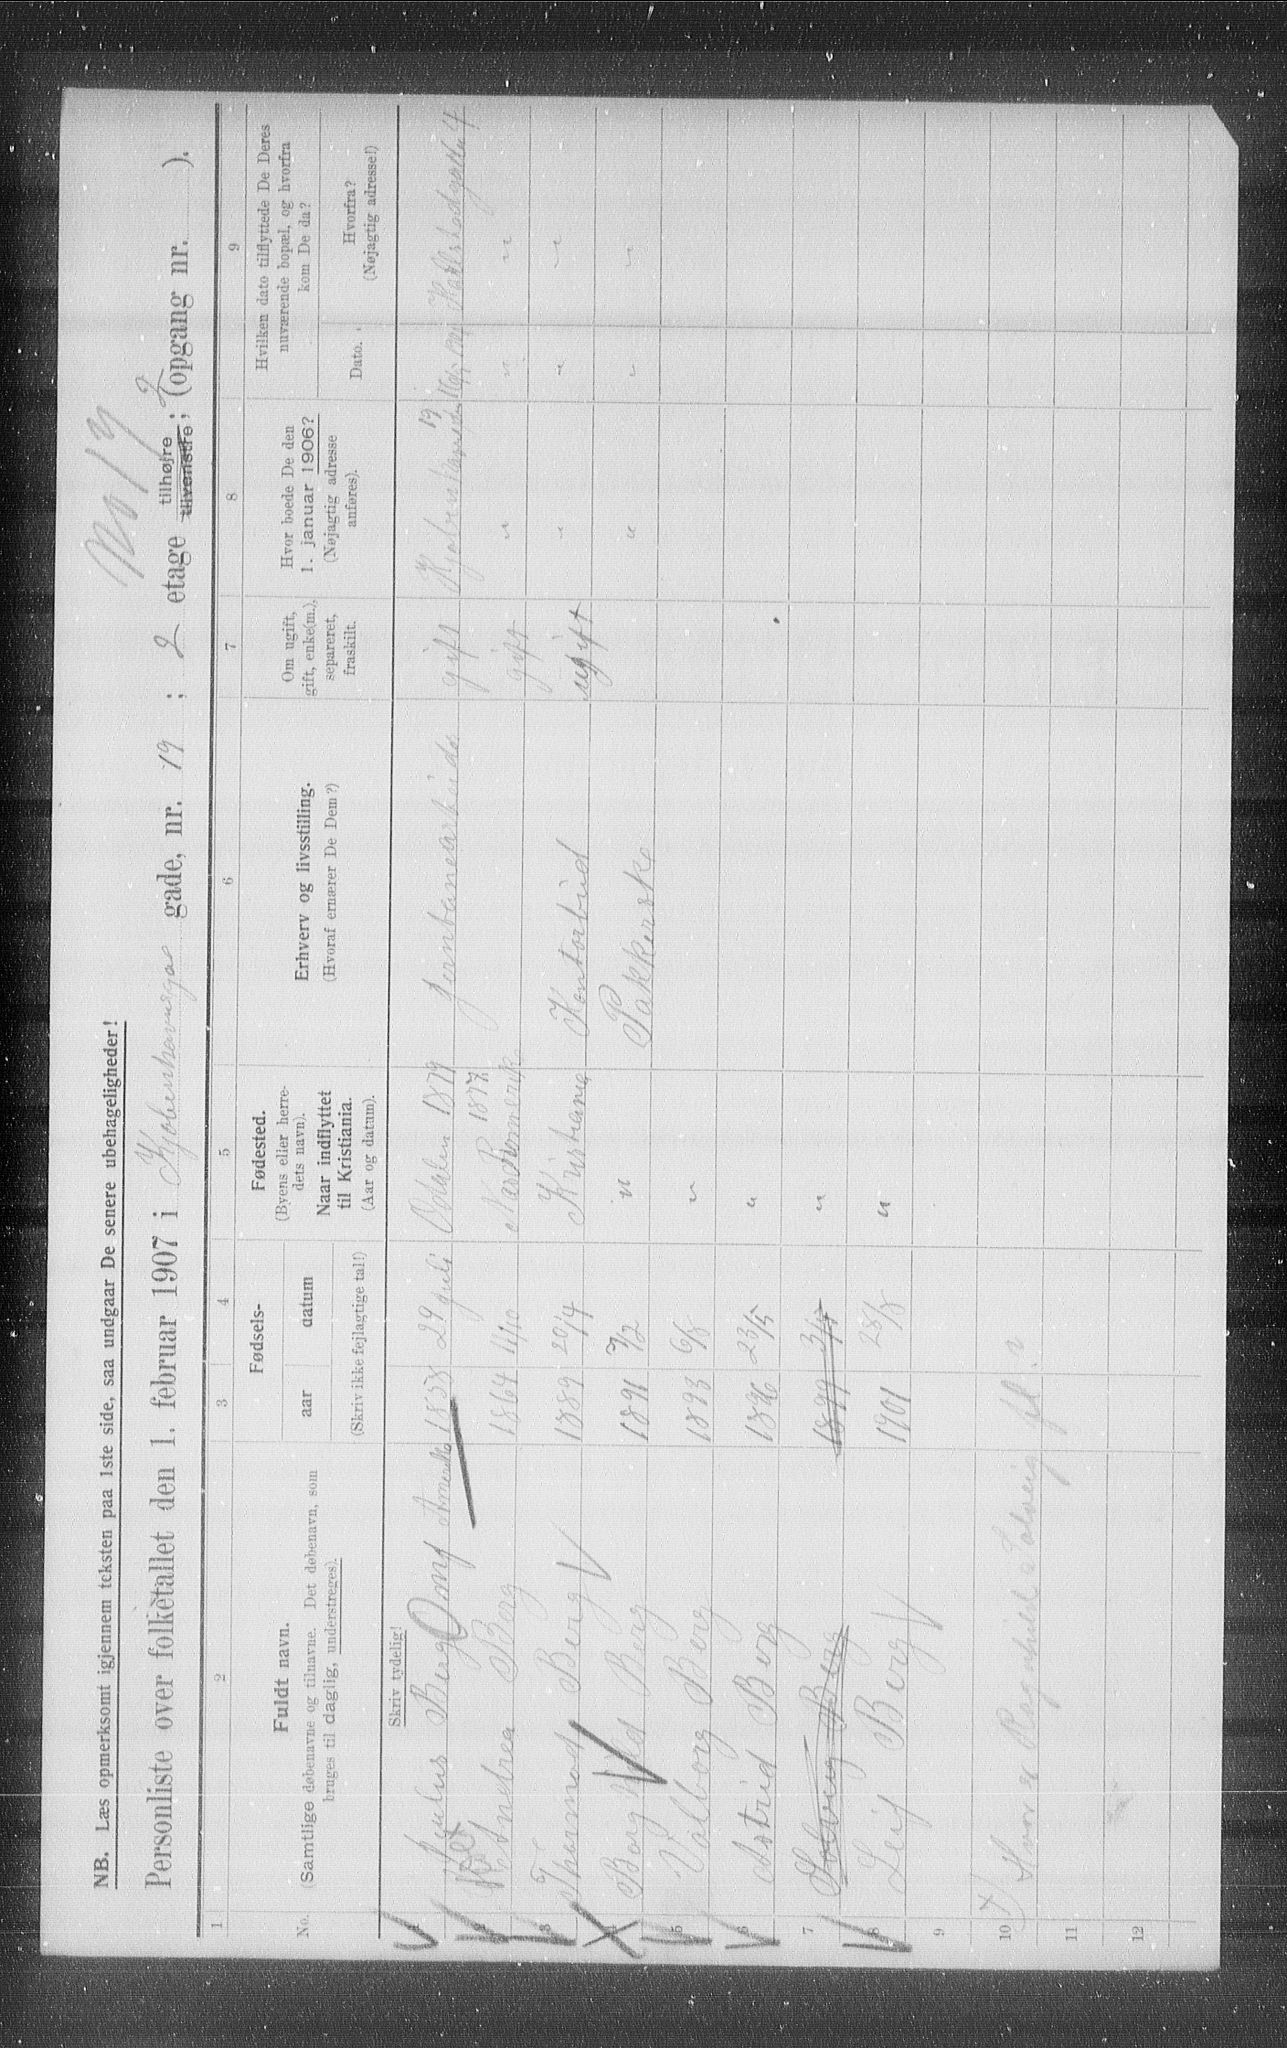 NB. Læs opmerksomt igjennem teksten paa 1ste side, saa undgaar De senere ubehageligheder!
Personliste over folketallet den 1. februar 1907 i Kjøbenhavnsga gade, nr. 19 ; 2 etage tilhøjre ; (opgang nr. ).
tilvenstre
1 2 3 4 5 6 7 8 9
No. Fuldt navn. (Samtlige døbenavne og tilnavne. Det døbenavn, som bruges til daglig, understreges).
Fødsels-
aar datum
(Skriv ikke fejlagtige tal!)
Fødested. (Byens eller herredets navn). Naar indflyttet til Kristiania. (Aar og datum).
Erhverv og livsstilling. (Hvoraf ernærer De Dem?)
Om ugift, gift, enke(m.), separeret, fraskilt.
Hvor boede De den 1. januar 1906? (Nøjagtig adresse anføres).
Hvilken dato tilflyttede De Deres nuværende bopæl, og hvorfra kom De da?
Dato. Hvorfra? (Nøjagtig adresse!)
Skriv tydelig!
1 Julius Berg Amerika 1858 29 juli Odalen 1879 Jernbanearbeider gift 19
2 Andrea Berg 1864 4/10 Romerike 1877 gift " " "
3 Thormod Berg 1889 20/4 Kristiania Kontorbud ugift " " "
4 Borghild Berg 1891 7/2 " Pakkerske " " "
5 Valborg Berg 1893 6/8 "
6 Astrid Berg 1896 23/5 "
7 Solveig Berg 1899 3/4 "
8 Leif Berg 1901 28/8 "
9
10 x) Hvor er Ragnhild & Solveig
11
12